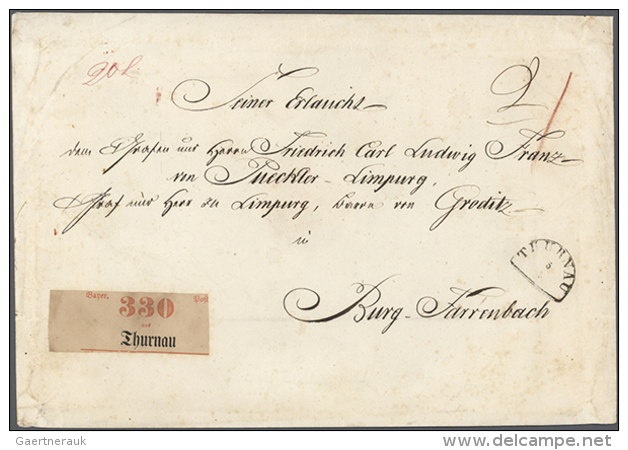 20 L
2
Seiner Erlaucht
dem Grafen und Herrn Friedrich Carl Ludwig Franz
von Pueckler-Limpurg,
Graf und Herr zu Limpurg, Baron von Groditz
in
THURNAU
6
Burg-Farrenbach
Bayer. Post
330
aus
Thurnau
Gaertnerauk
©delcampe.net